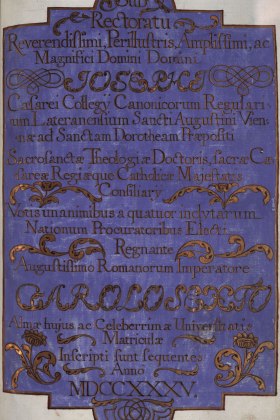 Sub
Rectoratu
Reverendissimi, Perillustris, Amplissimi, ac
Magnifici Domini Domini
IOSEPHI
Cæsarei Collegy Canonicorum Regulari
um Lateranensium Sancti Augustini Vien
næ ad Sanctam Dorotheam Præpositi
Sacrosanctæ Theologiæ Doctoris, sacræ Cæ
sareæ Regiæque Catholicæ Majestatis
Consiliary
Votis unanimibus a quatuor inclytarum
Nationum Procuratoribus Electi.
Regnante
Augustissimo Romanorum Imperatore
CAROLO SEXTO
Almæ hujus ac Celeberrimæ Universitatis
Matriculæ
Inscripti sunt sequentes
Anno
MDCCXXXV.